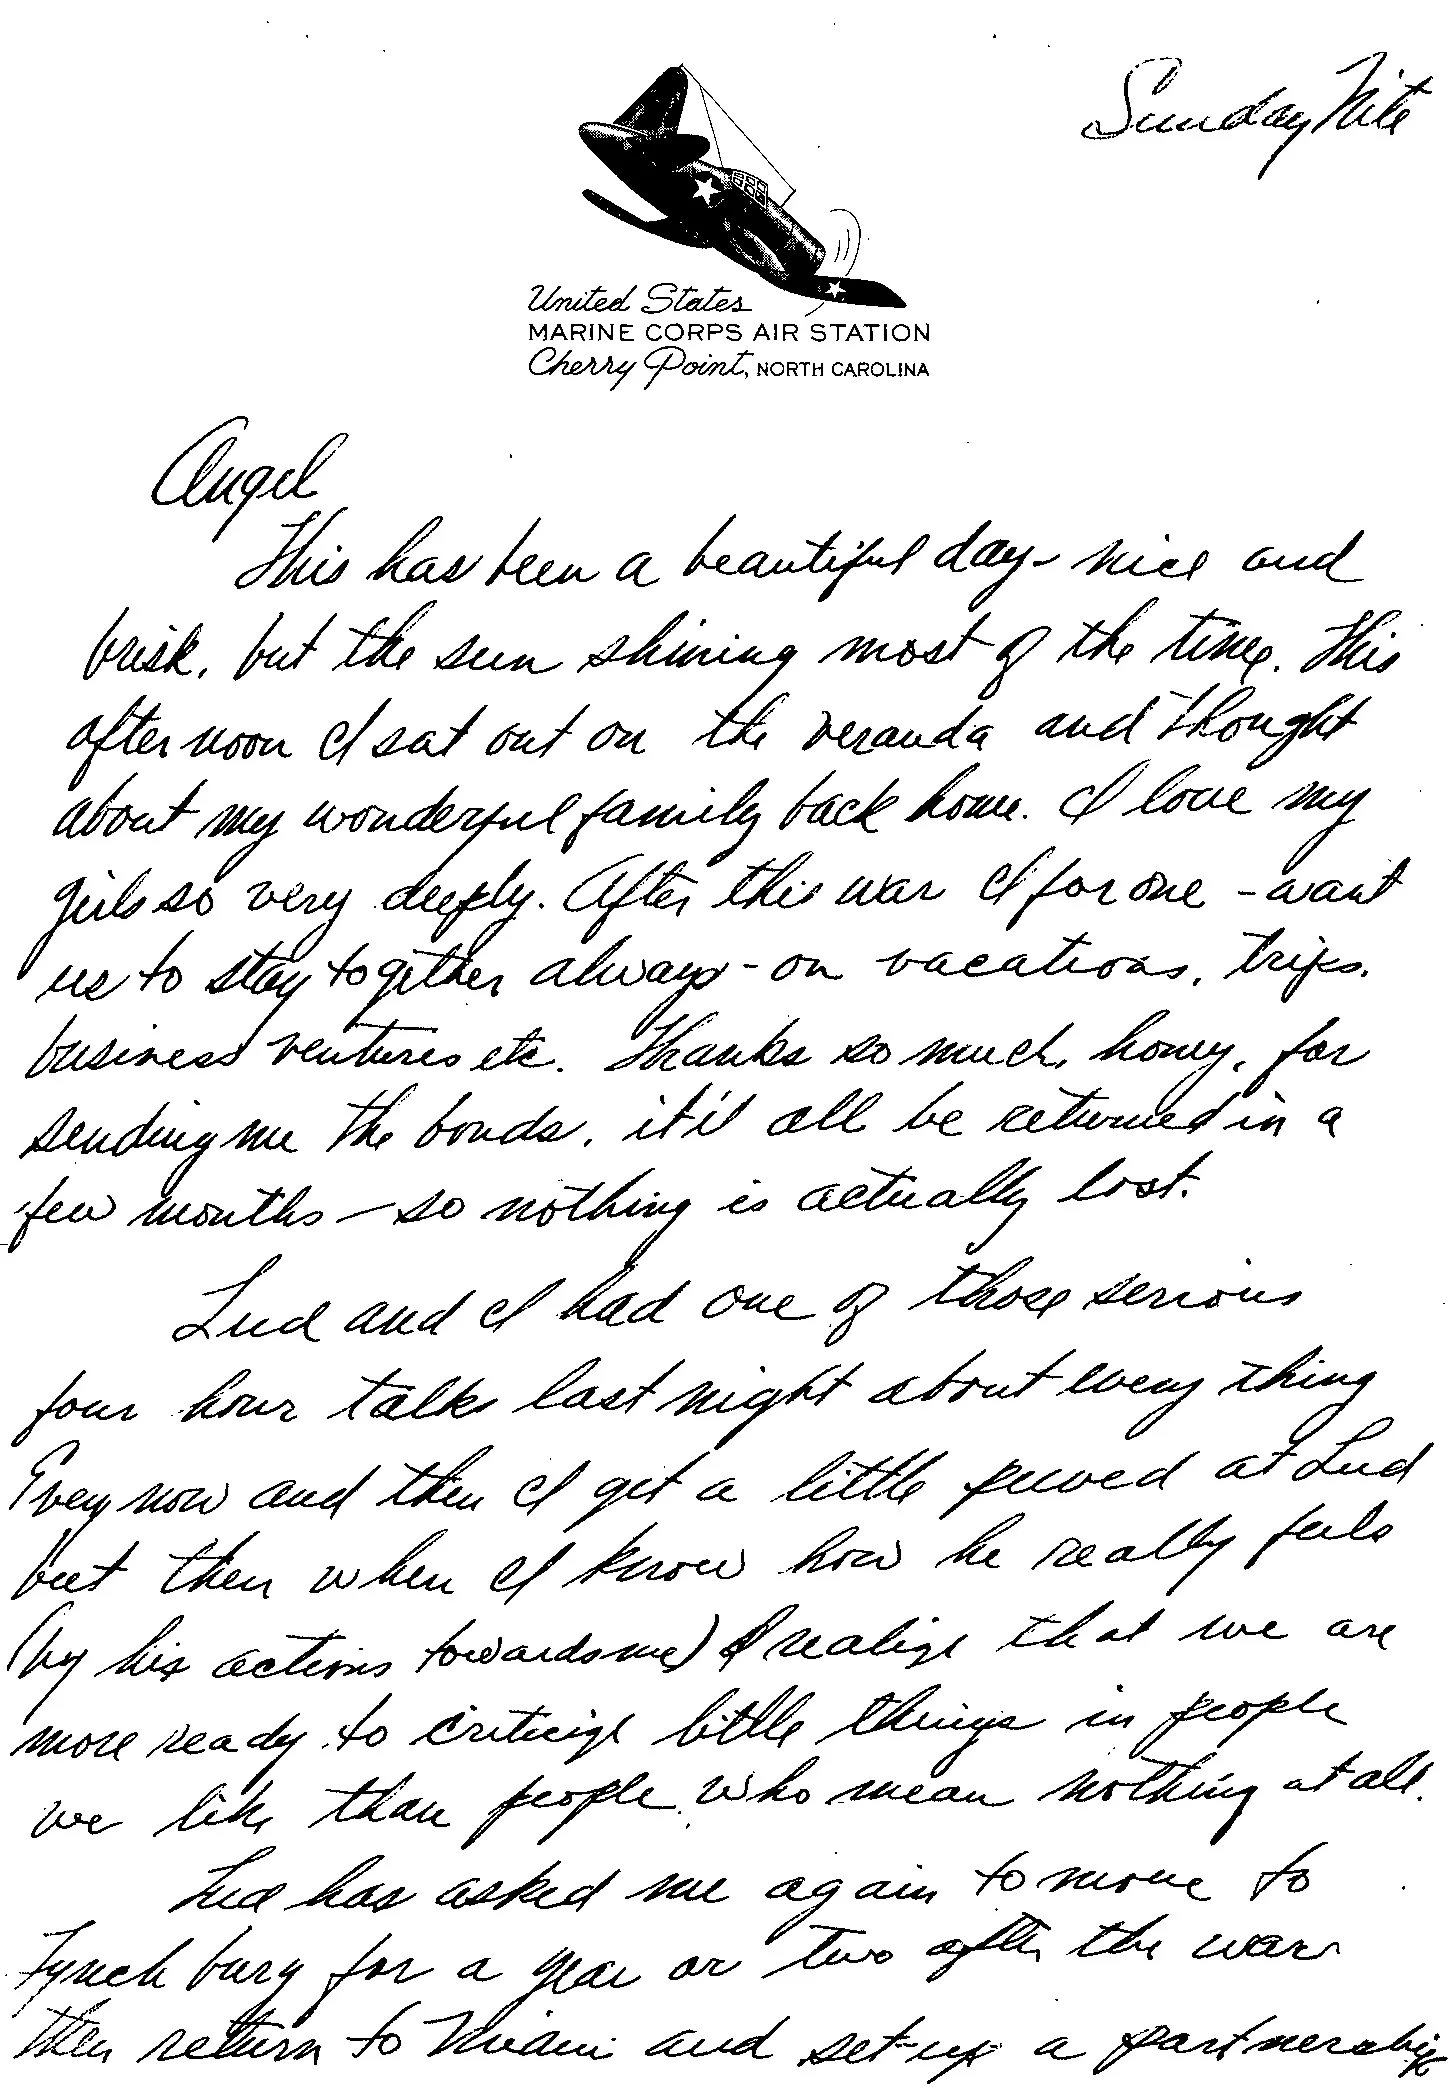 Sunday Nite
United States
MARINE CORPS AIR STATION
Cherry Point, NORTH CAROLINA
Angel
This has been a beautiful day - nice and
brisk, but the sun shining most of the time. This
afternoon I sat out on the veranda and thought
about my wonderful family back home. I love my
girls so very deeply. After this war I for one - want
us to stay together always - on vacations, trips,
business ventures etc. Thanks so much, honey, for
sending me the bonds, it'l all be returned in a
few months - so nothing is actually lost.
Lud and I had one of those serious
four hour talks last night about every thing
Every now and then I get a little peeved at Lud
but then when I know how he really feels
(by his actions towards me) I realize that we are
more ready to criticize little things in people
we like than people who mean nothing at all.
Lud has asked me again to move to
Lynchburg for a year or two after the war
then return to Miami and set-up a partnership